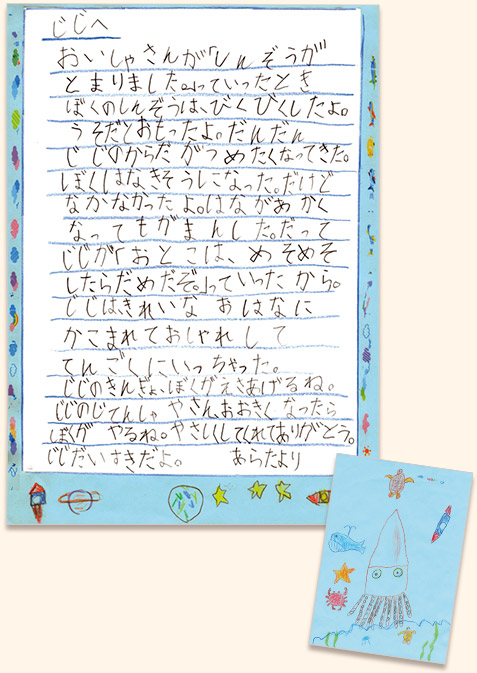 じじへ
おいしゃさんが「しんぞうが
とまりました。」っていったとき
ぼくのしんぞうは、びくびくしたよ。
うそだとおもったよ。だんだん
じじのからだがつめたくなってきた。
ぼくはなきそうになった。だけど
なかなかったよ。はながあかく
なってもがまんした。だって
じじが「おとこは、めそめそ
したらだめだぞ。」っていったから。
じじは、きれいなおはなに
かこまれておしゃれして
てんごくにいっちゃった。
じじのきんぎょ、ぼくがえさあげるね。
じじのじてんしゃやさん、おおきくなったら
ぼくがやるね。やさしくしてくれてありがとう。
じじだいすきだよ。 あらたより